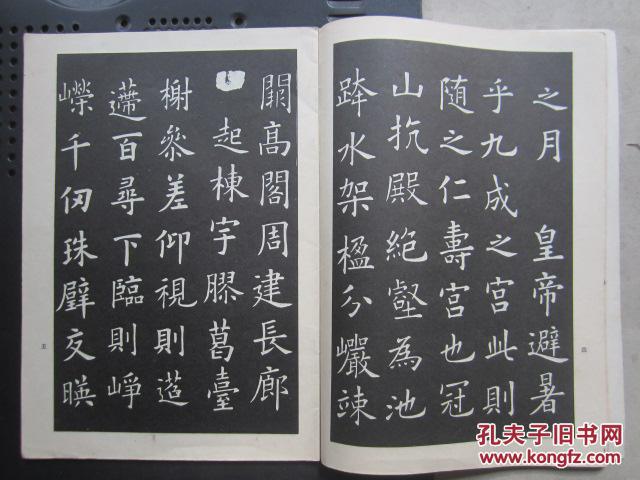 之月 皇帝避暑
乎九成之宮此則
随之仁壽宮也冠
山抗殿絶壑為池
跨水架楹分巖竦
四
闕高閣周建長廊
起棟宇膠葛臺
榭叅差仰視則迢
遰百尋下臨則崢
嶸千仞珠璧交暎
五
孔夫子旧书网
KONGFZ.COM